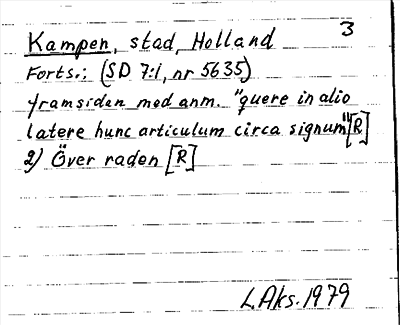 3
Kampen, stad, Holland
Forts.: (SD 7:1, nr 5635)
framsidan med anm. "quere in alio
latere hunc articulum circa signum" [R]
2) Över raden [R]
L Aks. 1979